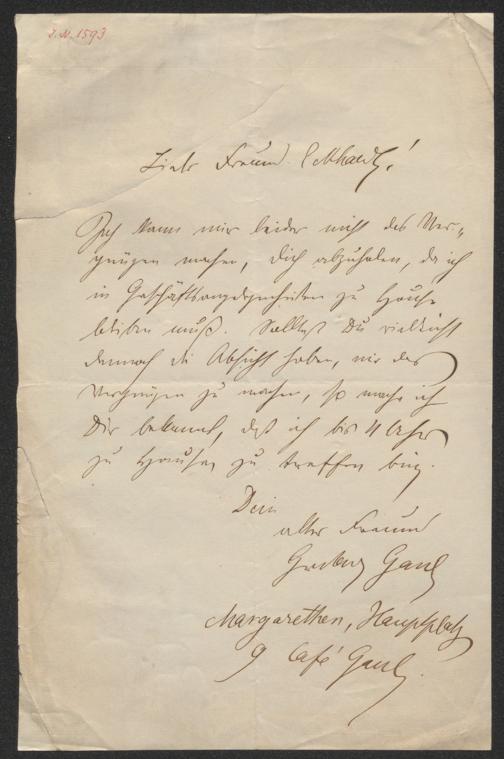 I. N. 1593
Lieber Freund Eckhardt!
Ich kann mir leider nicht das Ver-„
gnügen machen, Dich abzuholen, da ich
in Geschäftsangelegenheiten zu Hause
bleiben muß. Solltest Du vielleicht
dennoch die Absicht haben, mir das
Vergnügen zu machen, so mache ich
Dir bekannt, daß ich bis 4 Uhr
zu Hause zu treffen bin.
Dein
alter Freund
Gaul
Margarethen, Hauptplatz
9 Café Gaul.